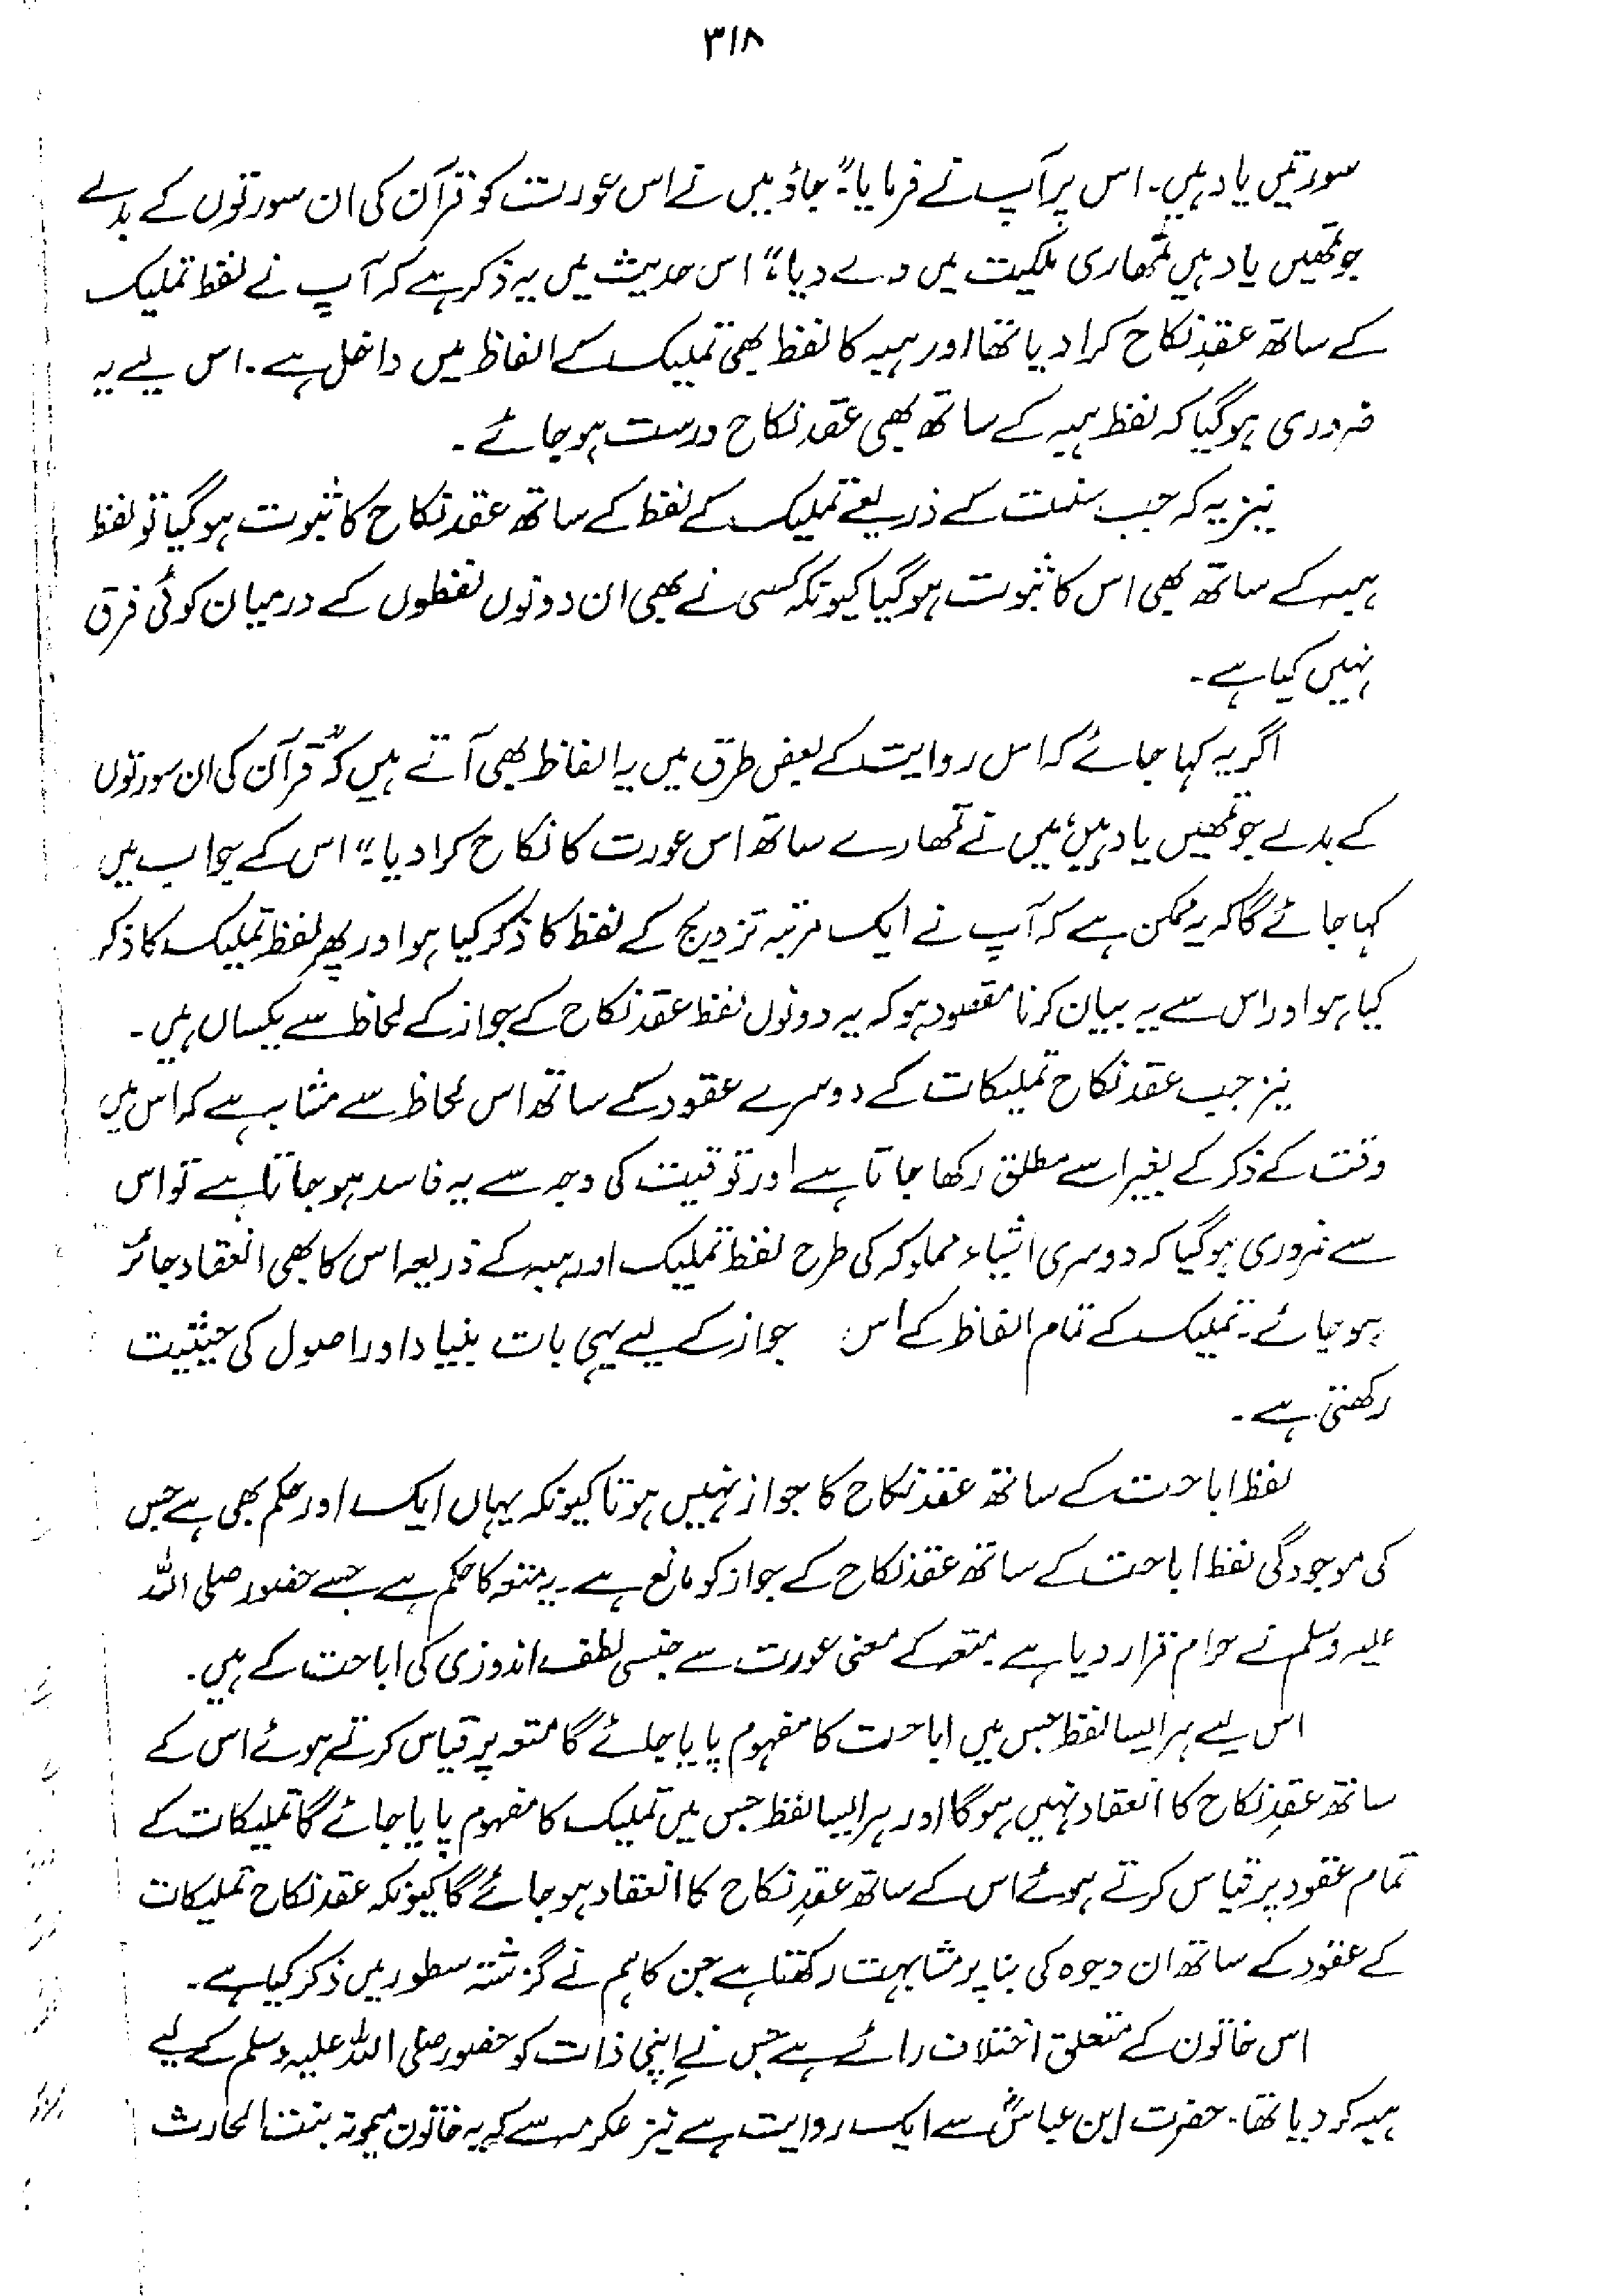 ۳۱۸
سورتیں یاد ہیں۔ اس پر آپ نے فرمایا: "جاؤ میں نے اس عورت کو قرآن کی ان سورتوں کے بدلے
جو تمھیں یاد ہیں تمھاری ملکیت میں دے دیا،" اس حدیث میں یہ ذکر ہے کہ آپ نے لفظ تملیک
کے ساتھ عقدِ نکاح کرا دیا تھا اور ہبہ کا لفظ بھی تملیک کے الفاظ میں داخل ہے۔ اس لیے یہ
ضروری ہوگیا کہ لفظ ہبہ کے ساتھ بھی عقد نکاح درست ہو جائے۔
نیز یہ کہ جب سنت کے ذریعے تملیک کے لفظ کے ساتھ عقد نکاح کا ثبوت ہوگیا تو لفظ
ہبہ کے ساتھ بھی اس کا ثبوت ہوگیا کیونکہ کسی نے بھی ان دونوں لفظوں کے درمیان کوئی فرق
نہیں کیا ہے۔
اگر یہ کہا جائے کہ اس روایت کے بعض طرق میں یہ الفاظ بھی آتے ہیں کہ "قرآن کی ان سورتوں
کے بدلے جو تمھیں یاد ہیں، میں نے تمھارے ساتھ اس عورت کا نکاح کرا دیا۔" اس کے جواب میں
کہا جائے گا کہ یہ ممکن ہے کہ آپ نے ایک مرتبہ تزویج کے لفظ کا ذکر کیا ہو اور پھر لفظ تملیک کا ذکر
کیا ہو اور اس سے یہ بیان کرنا مقصود ہو کہ یہ دونوں لفظ عقد نکاح کے جواز کے لحاظ سے یکساں ہیں۔
نیز جب عقد نکاح تملیکات کے دوسرے عقود کے ساتھ اس لحاظ سے مشابہ ہے کہ اس میں
وقت کے ذکر کے بغیر اسے مطلق رکھا جاتا ہے اور توقیت کی وجہ سے یہ فاسد ہو جاتا ہے تو اس
سے ضروری ہوگیا کہ دوسری اشیاء مملوکہ کی طرح لفظ تملیک اور ہبہ کے ذریعہ اس کا بھی انعقاد جائز
ہو جائے۔ تملیک کے تمام الفاظ کے اس جواز کے لیے یہی بات بنیاد اور اصول کی حیثیت
رکھتی ہے۔
لفظ اباحت کے ساتھ عقد نکاح کا جواز نہیں ہوتا کیونکہ یہاں ایک اور حکم بھی ہے جس
کی موجودگی لفظ اباحت کے ساتھ عقد نکاح کے جواز کو مانع ہے۔ یہ متعہ کا حکم ہے جسے حضور صلی اللہ
علیہ وسلم نے حرام قرار دیا ہے۔ متعہ کے معنی عورت سے جنسی لطف اندوزی کی اباحت کے ہیں۔
اس لیے ہر ایسا لفظ جس میں اباحت کا مفہوم پایا جائے گا متعہ پر قیاس کرتے ہوئے اس کے
ساتھ عقدِ نکاح کا انعقاد نہیں ہوگا اور ہر ایسا لفظ جس میں تملیک کا مفہوم پایا جائے گا تملیکات کے
تمام عقود پر قیاس کرتے ہوئے اس کے ساتھ عقدِ نکاح کا انعقاد ہو جائے گا کیونکہ عقد نکاح تملیکات
کے عقود کے ساتھ ان وجوہ کی بنا پر مشابہت رکھتا ہے جن کا ہم نے گزشتہ سطور میں ذکر کیا ہے۔
اس خاتون کے متعلق اختلاف رائے ہے جس نے اپنی ذات کو حضور صلی اللہ علیہ وسلم کے لیے
ہبہ کر دیا تھا۔ حضرت ابن عباسؓ سے ایک روایت ہے نیز عکرمہ سے کہ یہ خاتون میمونہ بنت الحارث